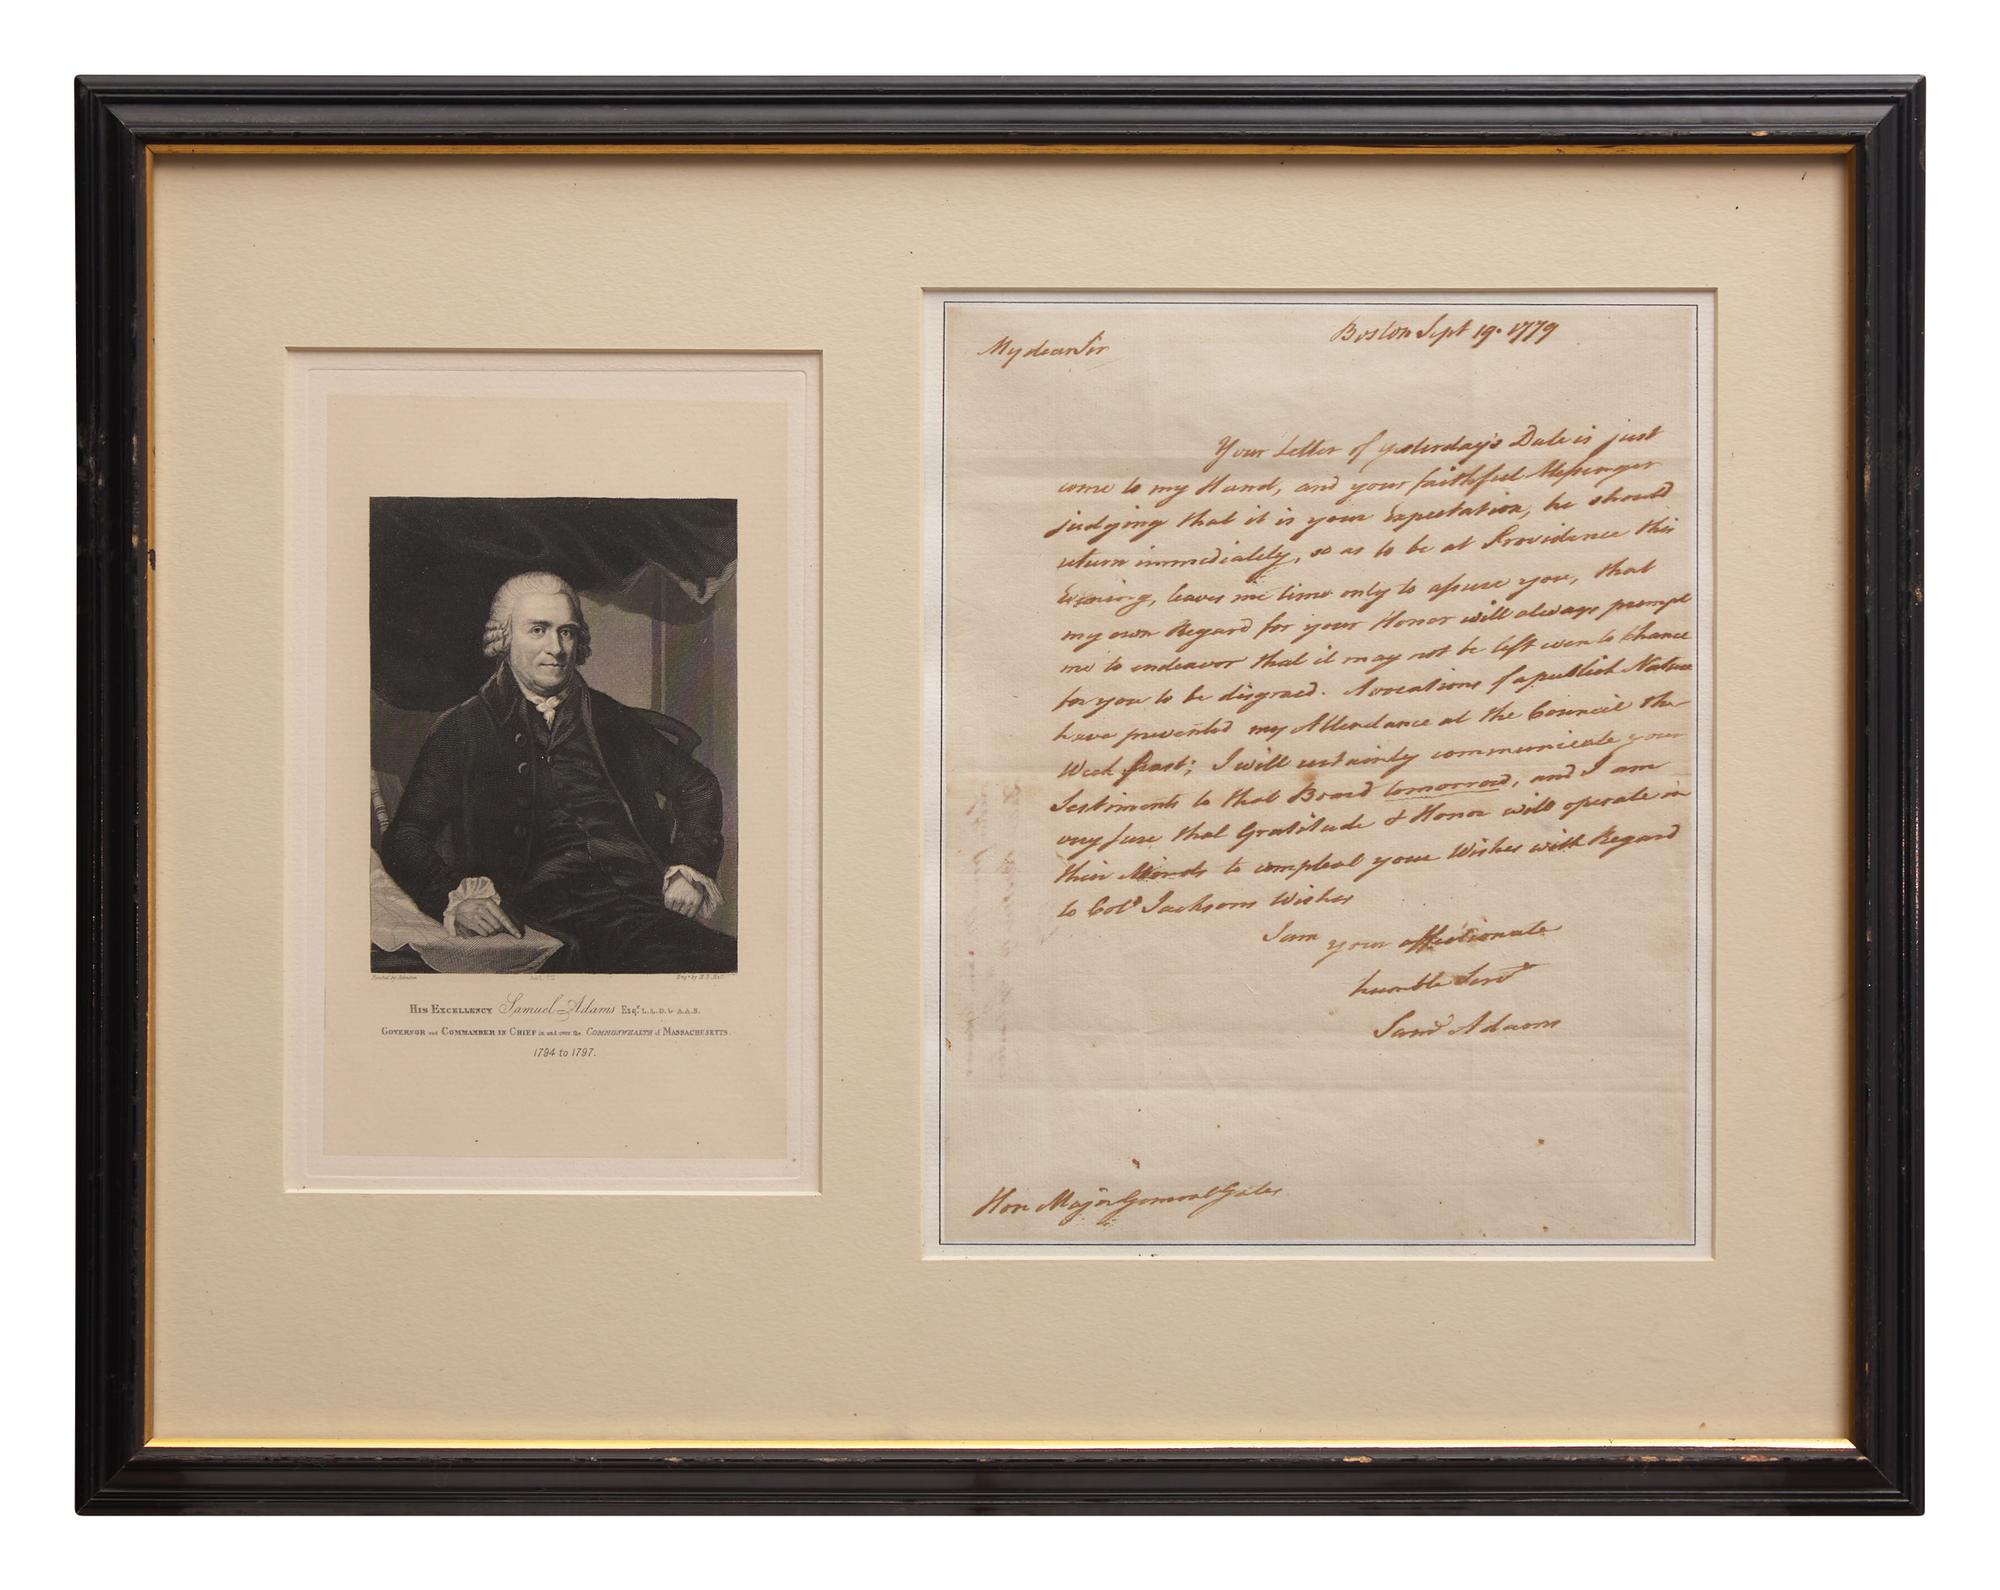 His Excellency Samuel Adams Esqr. L.L.D. & A.A.S.
Governor and Commander in Chief in and over the Commonwealth of Massachusetts.
1794 to 1797.
Boston Sept 19. 1779
My dear Sir
Your Letter of yesterday's Date is just
come to my Hand, and your faithful Messenger
judging that it is your Expectation, he should
return immediately, so as to be at Providence this
Evening, leaves me time only to assure you, that
my own Regard for your Honor will always prompt
me to endeavor that it may not be left even to Chance
for you to be disgracd. Avocations of a publick Nature
have prevented my Attendance at the Council the
Week past; I will certainly communicate your
Sentiments to that Board tomorrow, and I am
very sure that Gratitude & Honor will operate in
their Minds to compleat your Wishes with Regard
to Colo Jacksons Wishes
I am your affectionate
humble Servt
Saml Adams
Hon Major General Gates